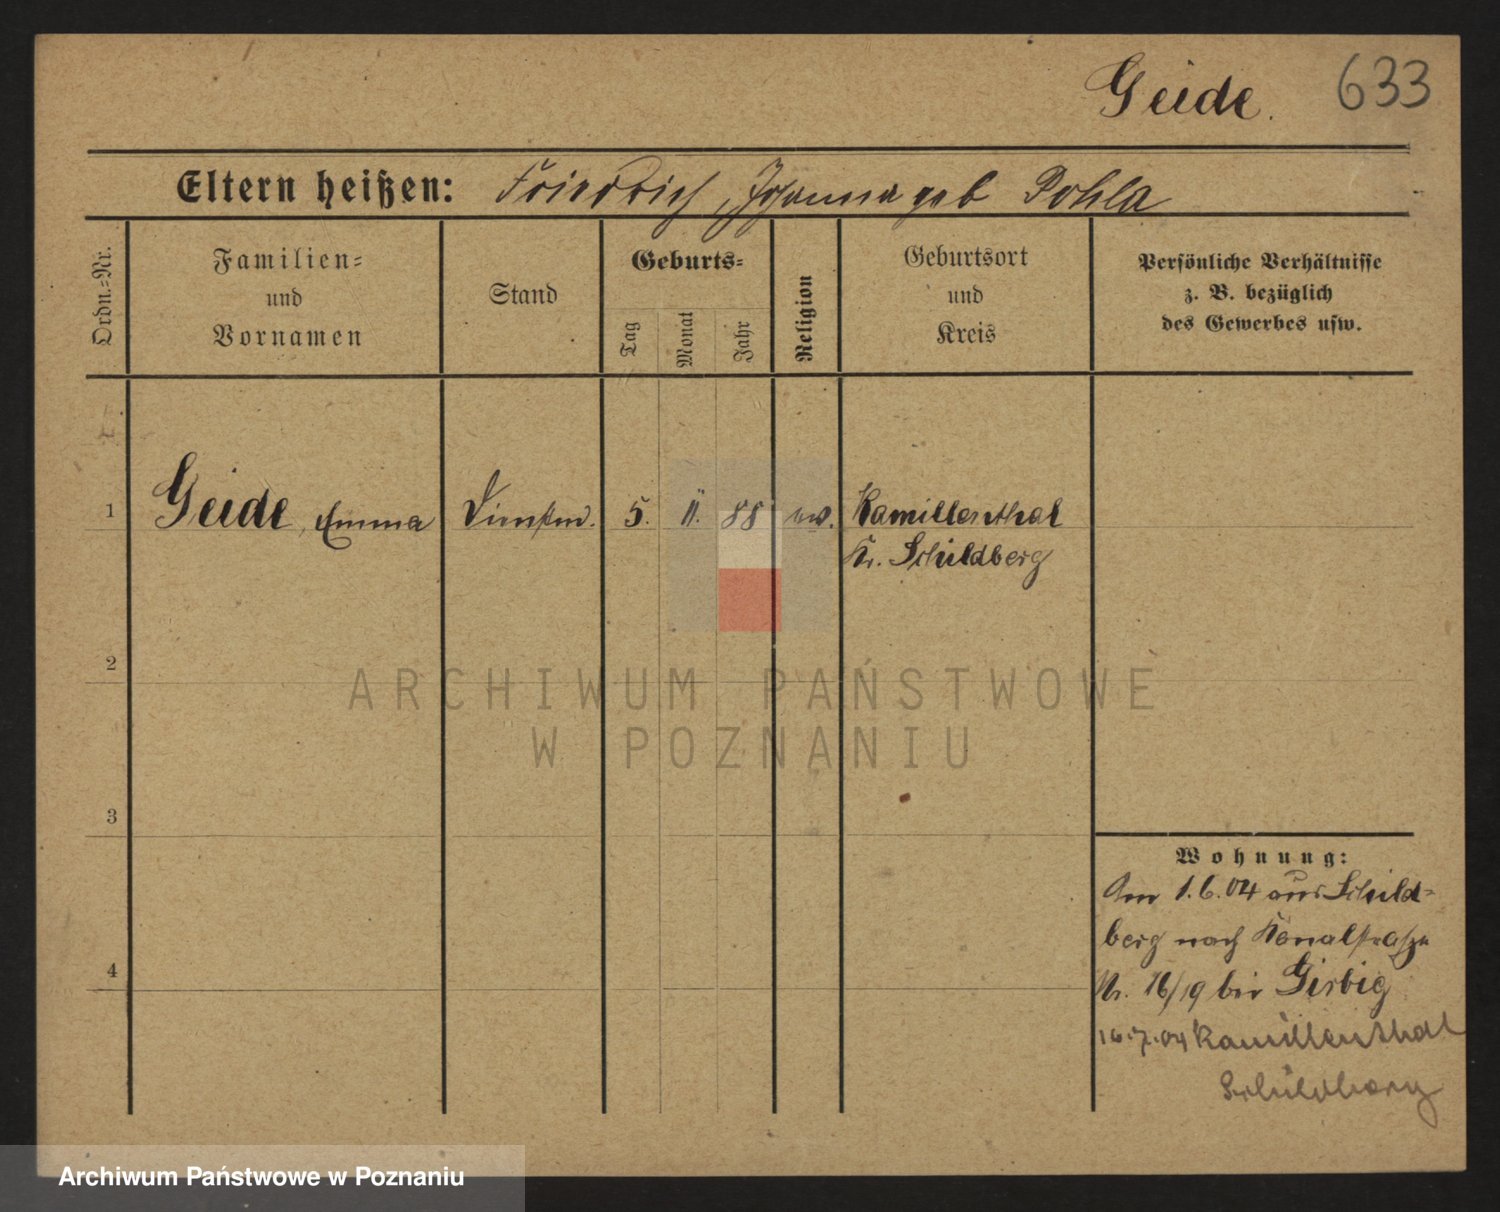 Geide. 633
Eltern heißen: Friedrich, Johanna geb Pohla
Ordn.-Nr.
Familien-
und
Vornamen
Stand
Geburts-
Tag
Monat
Jahr
Religion
Geburtsort
und
Kreis
Persönliche Verhältnisse
z. B. bezüglich
des Gewerbes usw.
1 Geide, Emma Dienstm. 5. 11. 88 ev. Kamillenthal
Kr. Schildberg
2
ARCHIWUM PAŃSTWOWE
W POZNANIU
3
Wohnung:
Am 1.6.04 aus Schild-
berg nach Kanalstraße
4
Nr. 16/19 bei Girbig
16.7.04 Kamillenthal
Schildberg
Archiwum Państwowe w Poznaniu